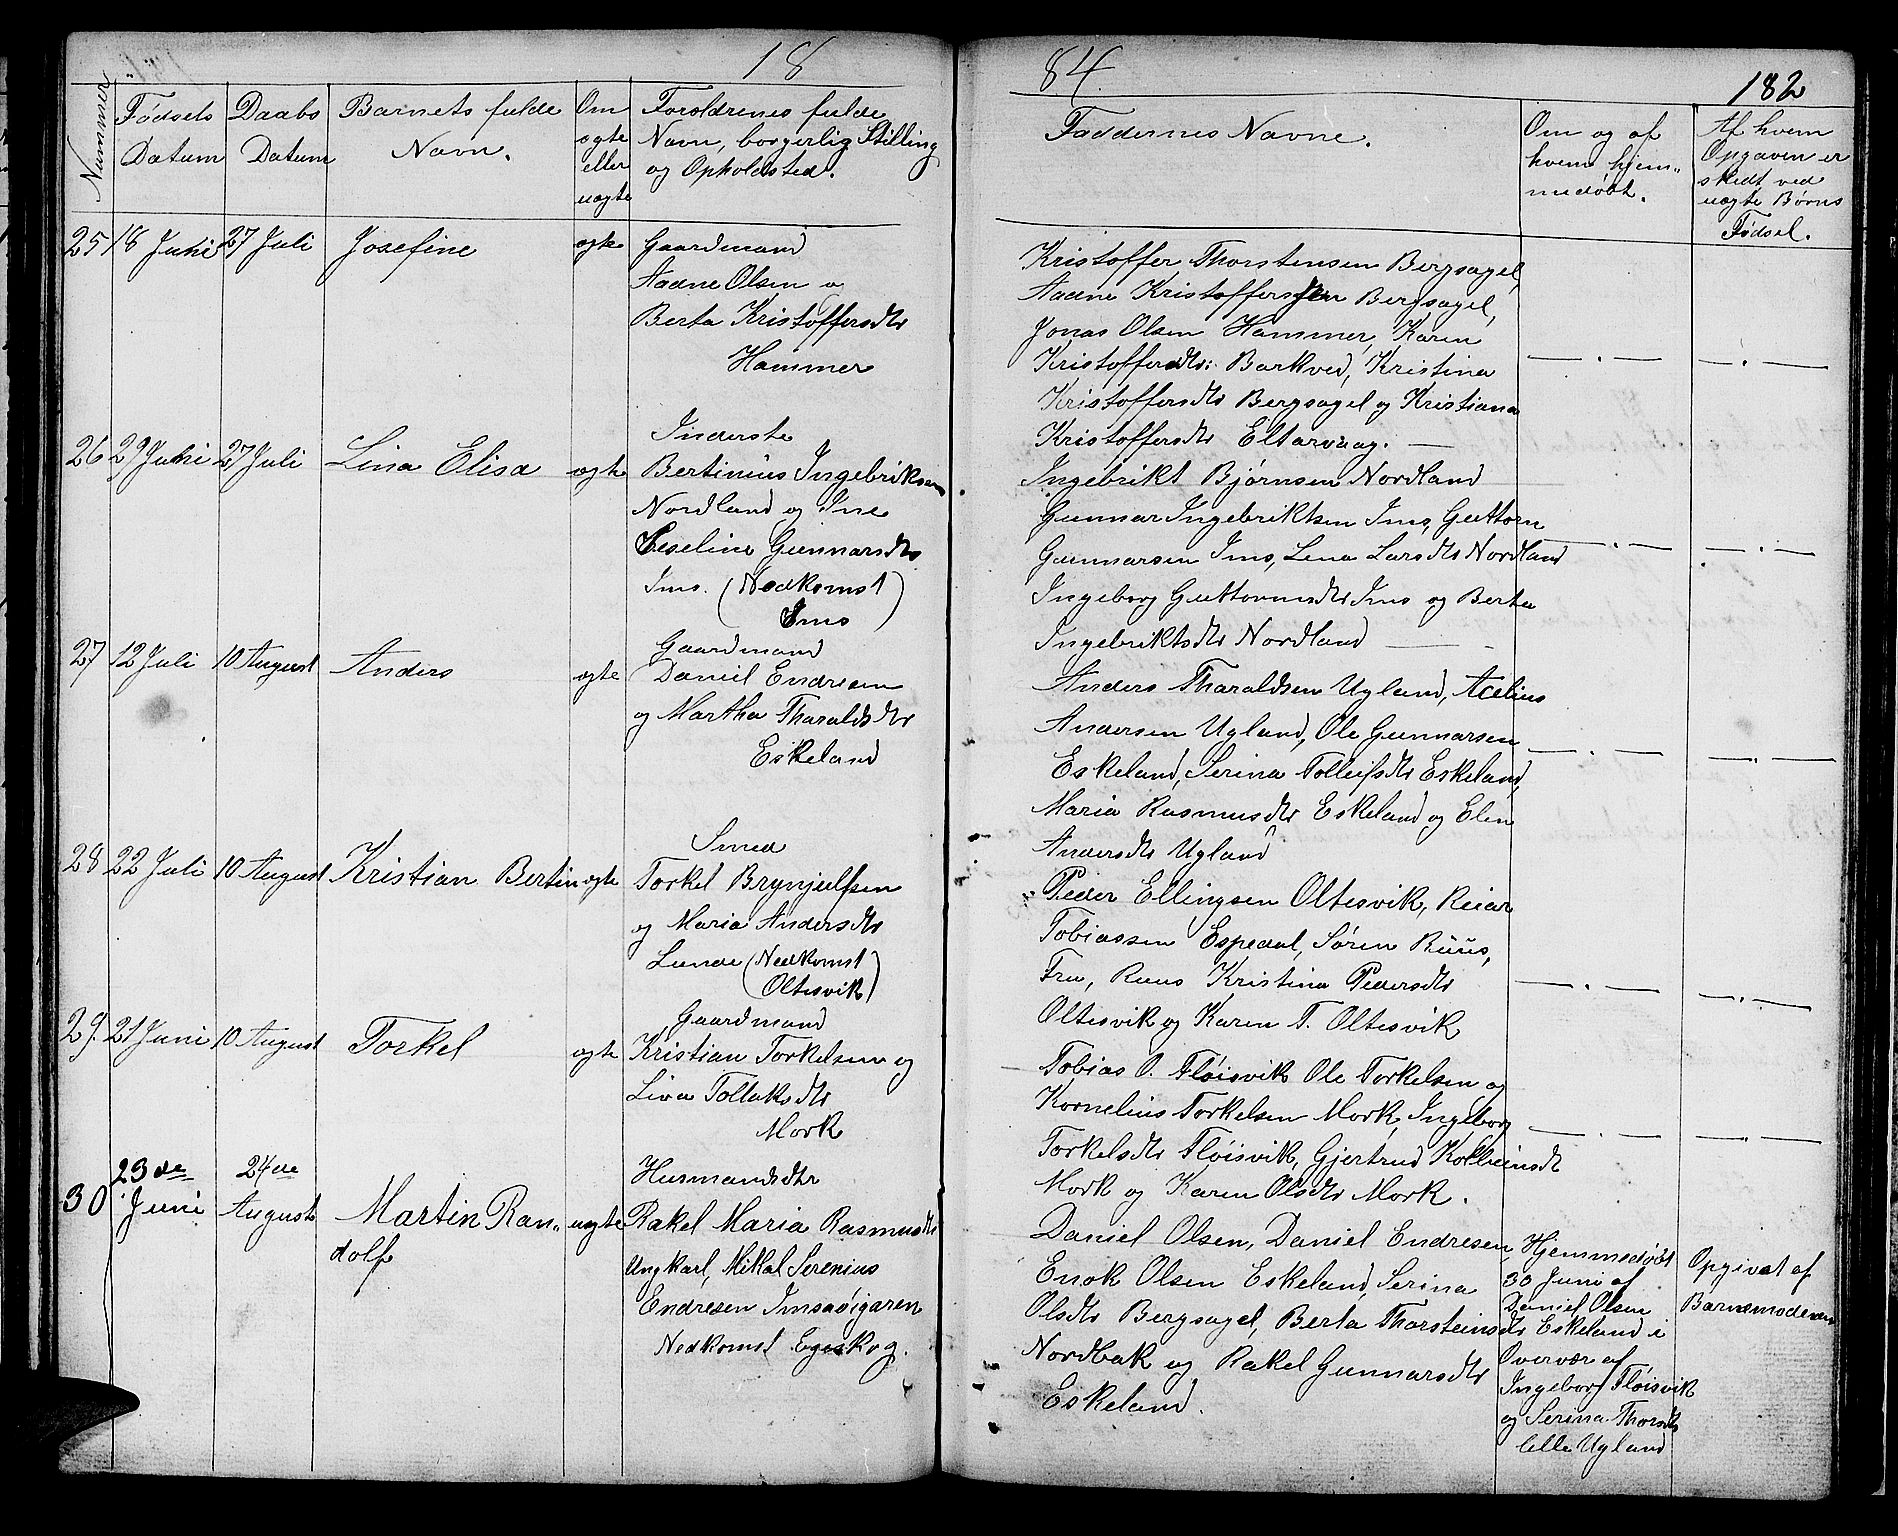 18
84.
182
Nummer
Fødsels
Datum
Daabs
Datum
Barnets fulde
Navn.
Om
ægte
eller
uægte
Forældrenes fulde
Navn, borgerlig Stilling
og Opholdsted.
Faddernes Navne.
Om og af
hvem hjem-
medøbt.
Af hvem
Opgaven er
skedt ved
uægte Børns
Fødsel.
25 18 Juni 27 Juli Josefine ægte
Gaardmand
Aadne Olsen og
Berta Kristoffersdtr
Hammer
Kristoffer Thorstensen Bergsagel,
Aadne Kristoffersen Bergsagel,
Jonas Olsen Hammer, Karen
Kristoffersdtr: Barkved, Kristina
Kristoffersdtr Bergsagel og Kristiana
Kristoffersdtr Eltarvaag.
26 29 Juni 27 Juli Lina Elisa ægte
Inderste
Bertinius Ingebriksen
Nordland og Ine
Seseline Gunnarsdtr
Ims. (Nedkomst
Ims)
Ingebrikt Bjørnsen Nordland
Gunnar Ingebriktsen Ims, Guttorm
Gunnarsen Ims, Lena Larsdtr Nordland
Ingeborg Guttormsdtr Ims og Berta
Ingebriktsdtr Nordland
27 12 Juli 10 August Anders ægte
Gaardmand
Daniel Endresen
og Martha Tharaldsdtr
Eskeland
Anders Tharaldsen Ugland, Acelius
Andersen Ugland, Ole Gunnarsen
Eskeland, Serina Tolleifsdtr Eskeland,
Maria Rasmusdtr Eskeland og Elen
Andersdtr Ugland
28 22 Juli 10 August Kristian Bertin ægte
Smed
Torkel Brynjulfsen
og Maria Andersdtr
Lunde (Nedkomst
Oltesvik)
Peder Ellingsen Oltesvik, Reiar
Tobiassen Espedal, Søren Ruus,
Fru, Ruus Kristina Pedersdtr
Oltesvik og Karen T. Oltesvik
29. 21 Juni 10 August Torkel ægte
Gaardmand
Kristian Torkelsen og
Liva Tollaksdtr
Mork
Tobias O. Fløisvik Ole Torkelsen og
Kornelius Torkelsen Mork, Ingeborg
Torkelsdtr Fløisvik, Gjertrud Kolbeinsdt
Mork og Karen Olsdtr Mork.
30 23de Juni 24de August Martin Ran-
dolf
uægte
Husmandsdtr
Rakel Maria Rasmusdtr
Ungkarl, Mikal Serenius
Endresen Imsaøigaren
Nedkomst Egeskog.
Daniel Olsen, Daniel Endresen,
Enok Olsen Eskeland, Serina
Olsdtr Bergsagel, Berta Thorsteinsdtr
Nordbak og Rakel Gunnarsdtr
Eskeland.
Hjemmedøbt
30 Juni af
Daniel Olsen
Eskeland i
Overvær af
Ingeborg Fløisvik
og Serina Thorsdtr
lille Ugland
Opgivet af
Barnemoderen